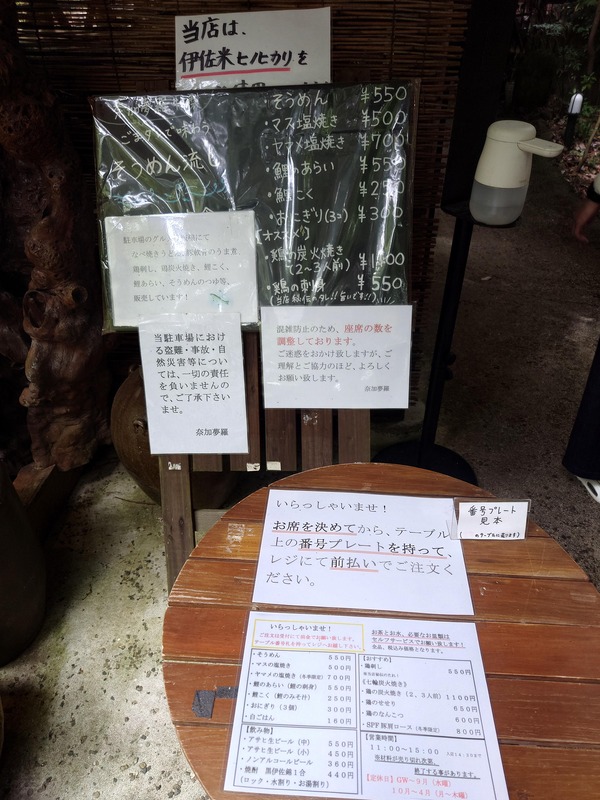 当店は、
伊佐米ヒノヒカリを
ごまダレで味わう
そうめん流し
・そうめん ¥550
・マス塩焼き ¥500
・ヤマメ塩焼き ¥700
・鯉のあらい ¥550
・鯉こく ¥250
・おにぎり(3コ) ¥300
・鶏の炭火焼き
(2〜3人前)
・鶏の刺身 ¥550
(当店秘伝のタレ!!旨いです!!)
駐車場のグル
にて
なべ焼きうどん
のうま煮
鶏刺し、鶏炭火焼き、鯉こく、
鯉あらい、そうめんのつゆ等、
販売しています!
当駐車場におけ
る盗難・事故・自
然災害等につい
ては、一切の責任
を負いませんの
で、ご了承下さい
ませ。
奈加夢羅
混雑防止のため、座席の数を
調整しております。
ご迷惑をおかけ致しますが、ご
理解とご協力のほど、よろしく
お願い致します。
奈加夢羅
いらっしゃいませ!
お席を決めてから、テーブル
上の番号プレートを持って、
レジにて前払いでご注文く
ださい。
番号プレート
見本
いらっしゃいませ!
お茶とお水、必要なお皿類は
セルフサービスでお願い致します!
全品、税込み価格となります。
・そうめん 550円
・マスの塩焼き 500円
・ヤマメの塩焼き(冬季限定) 700円
・鯉のあらい(鯉の刺身) 550円
・鯉こく(鯉のみそ汁) 250円
・おにぎり(3個) 300円
・白ごはん 160円
【飲み物】
・アサヒ生ビール(中) 550円
・アサヒ生ビール(小) 450円
・ノンアルコールビール 360円
・焼酎 黒伊佐錦1合 440円
(ロック・水割り・お湯割り)
【おすすめ】
・鶏刺し 550円
《七輪炭火焼き》
・鶏の炭火焼き(2、3人前) 1100円
・鶏のせせり 650円
・鶏のなんこつ 600円
・SPF豚肩ロース(冬季限定) 800円
【営業時間】
11:00〜15:00
※材料が売り切れ次第、
終了する事があります。
【定休日】GW〜9月(水曜)
10月〜4月(月〜木曜)